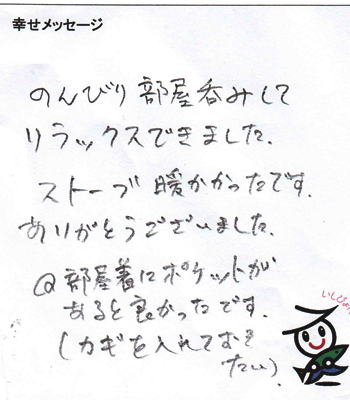 幸せメッセージ
のんびり部屋呑みして
リラックスできました.
ストーブ暖かかったです.
ありがとうございました.
@部屋着にポケットが
あると良かったです.
(カギを入れておき
たい)